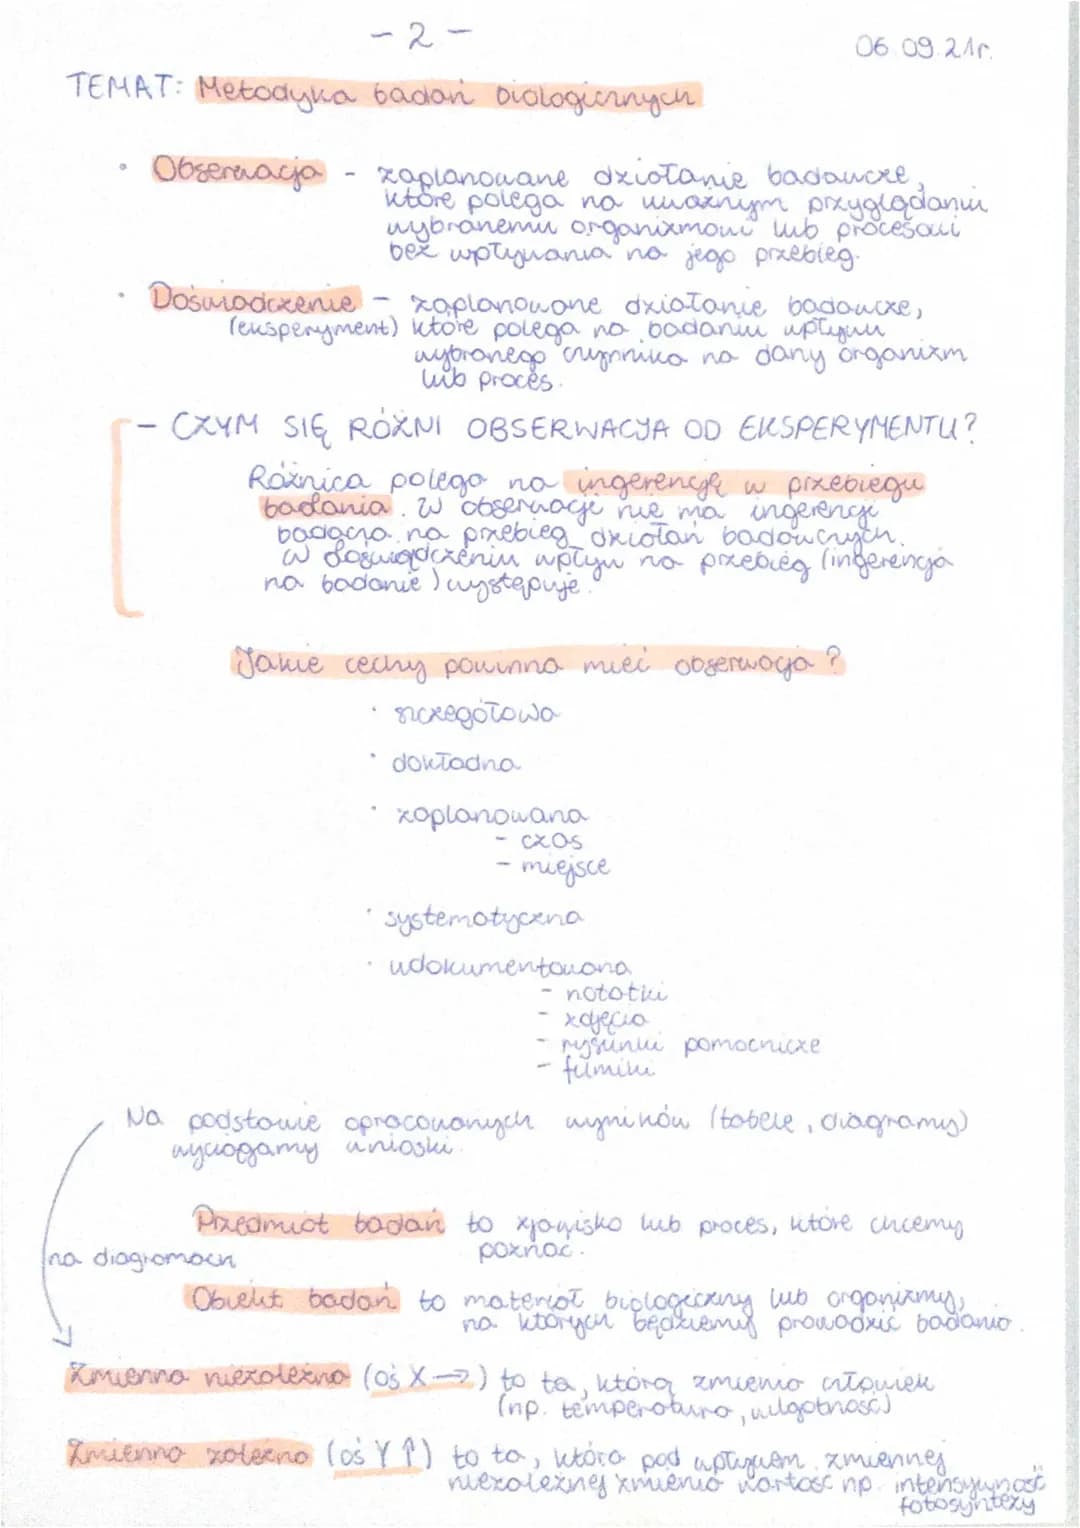 - 2 -
06.09.21r.
TEMAT: Metodyka badań biologicznych
• Obserwacja - zaplanowane działanie badawcze,
które polega na uważnym przyglądaniu
wybranemu organizmowi lub procesowi
bez wpływania na jego przebieg.
• Doświadczenie - zaplanowane działanie badawcze,
(eksperyment) które polega na badaniu wpływu
wybranego czynnika na dany organizm
lub proces.
- CZYM SIĘ RÓŻNI OBSERWACJA OD EKSPERYMENTU?
Różnica polega na ingerencję w przebiegu
badania. W obserwacji nie ma ingerencji
badacza na przebieg działań badawczych.
W doświadczeniu wpływ na przebieg (ingerencja
na badanie) występuje.
Jakie cechy powinna mieć obserwacja?
• szczegółowa
• dokładna
• zaplanowana
- czas
- miejsce
• systematyczna
• udokumentowana
- notatki
- zdjęcia
- rysunki pomocnicze
- filmiki
Na podstawie opracowanych wyników (tabele, diagramy)
wyciągamy wnioski.
Przedmiot badań to zjawisko lub proces, które chcemy
poznać.
na diagramach
Obiekt badań to materiał biologiczny lub organizmy,
na których będziemy prowadzić badanio.
Zmienna niezależna (oś X →) to ta, którą zmienia człowiek
(np. temperatura, wilgotność)
Zmienna zależna (oś Y ↑) to ta, która pod wpływem zmiennej
niezależnej zmienia wartość np. intensywność
fotosyntezy